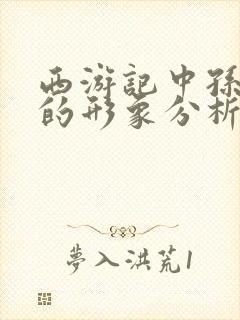 西游記中孫
的形象分析
夢入洪荒1